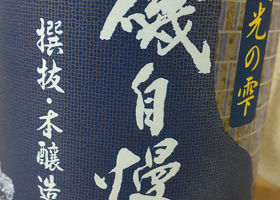 光の雫
磯自慢
撰抜・本醸造